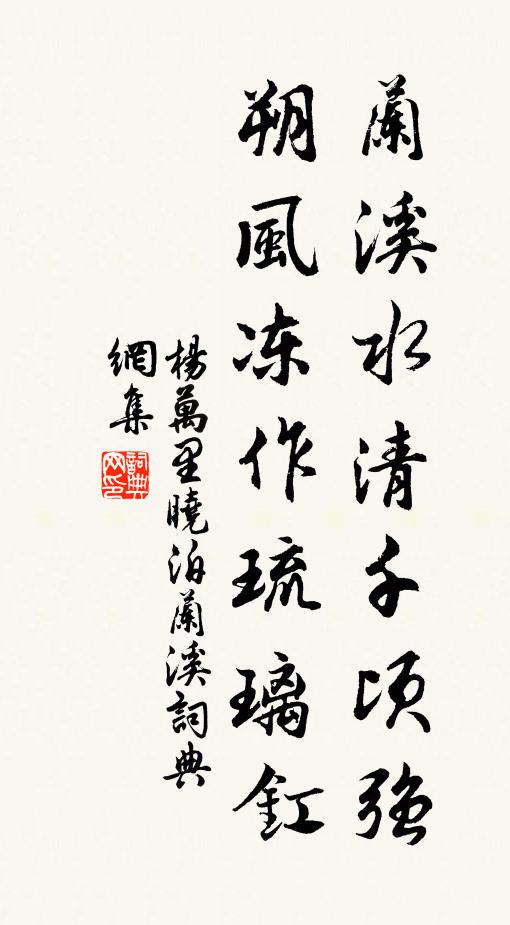 蘭溪水清千頃強
朔風凍作琉璃釭
楊萬里曉泊蘭溪詞典
網集
詞典網印